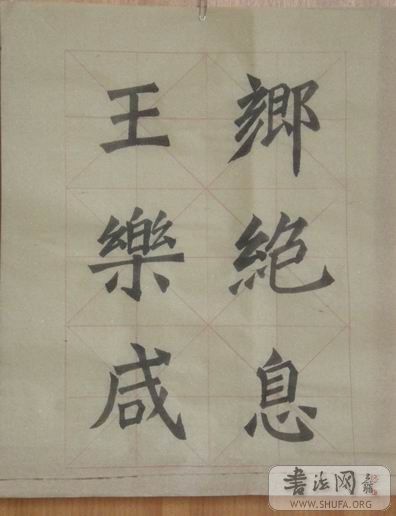 鄉絶息
王樂咸
書法网
WWW.SHUFA.ORG